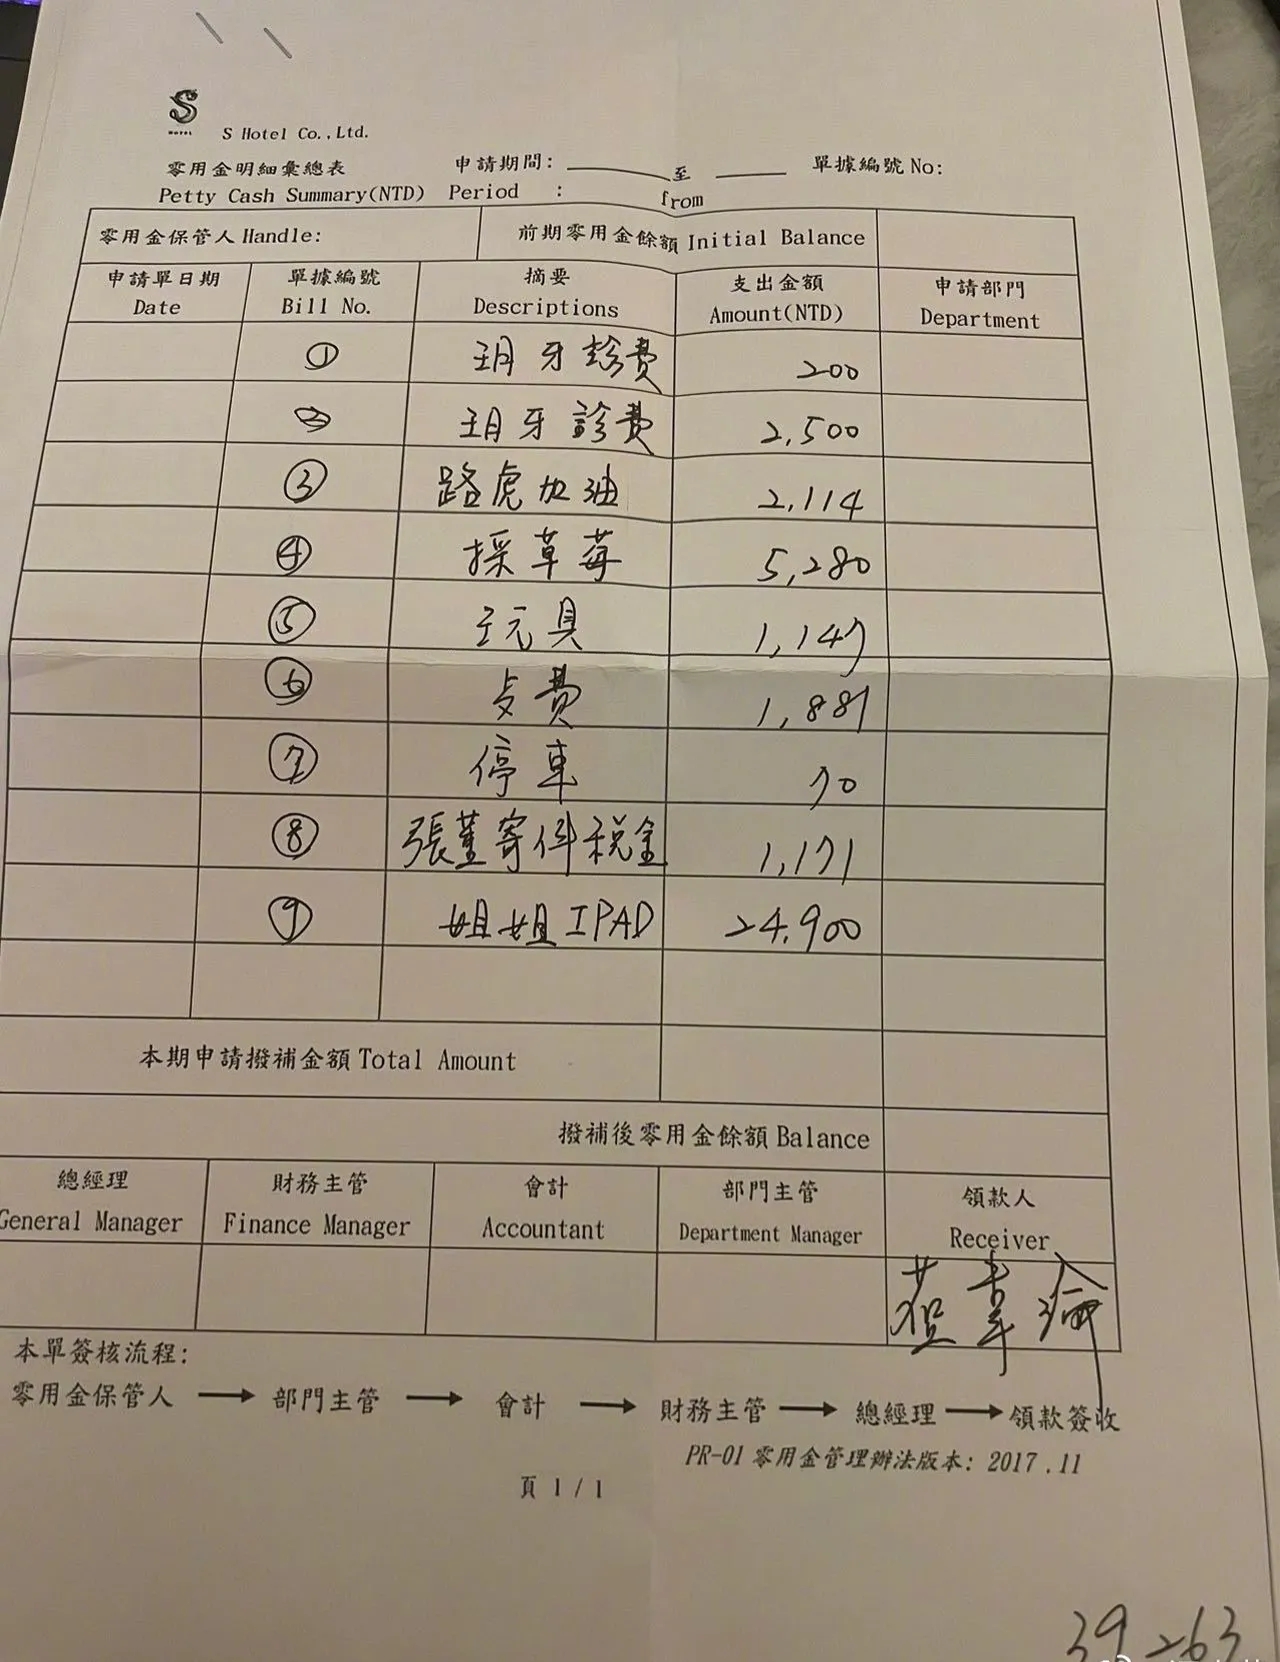 S
HOTEL
S Hotel Co.,Ltd.
零用金明細彙總表 申請期間: 至 單據編號 No:
Petty Cash Summary(NTD) Period : from
零用金保管人 Handle: 前期零用金餘額 Initial Balance
申請單日期 單據編號 摘要 支出金額 申請部門
Date Bill No. Descriptions Amount(NTD) Department
① 玥牙診費 200
② 玥牙診費 2,500
③ 路虎加油 2,114
④ 採草莓 5,280
⑤ 玩具 1,147
⑥ 費 1,881
⑦ 停車 70
⑧ 張董寄件稅金 1,171
⑨ 姐姐IPAD 24,900
本期申請撥補金額 Total Amount
撥補後零用金餘額 Balance
總經理 財務主管 會計 部門主管 領款人
General Manager Finance Manager Accountant Department Manager Receiver
本單簽核流程:
零用金保管人 → 部門主管 → 會計 → 財務主管 → 總經理 → 領款簽收
PR-01 零用金管理辦法版本: 2017.11
頁 1 / 1
39263